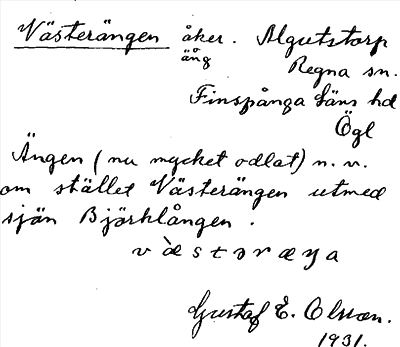 Västerängen åker. Algutstorp
äng Regna sn.
Finspånga läns hd
Ögl
Ängen (nu mycket odlat) n.v.
om stället Västerängen utmed
sjön Björklången.
v æ̀ s t ə r æ ŋ a
Gustaf E. Olsson.
1931.